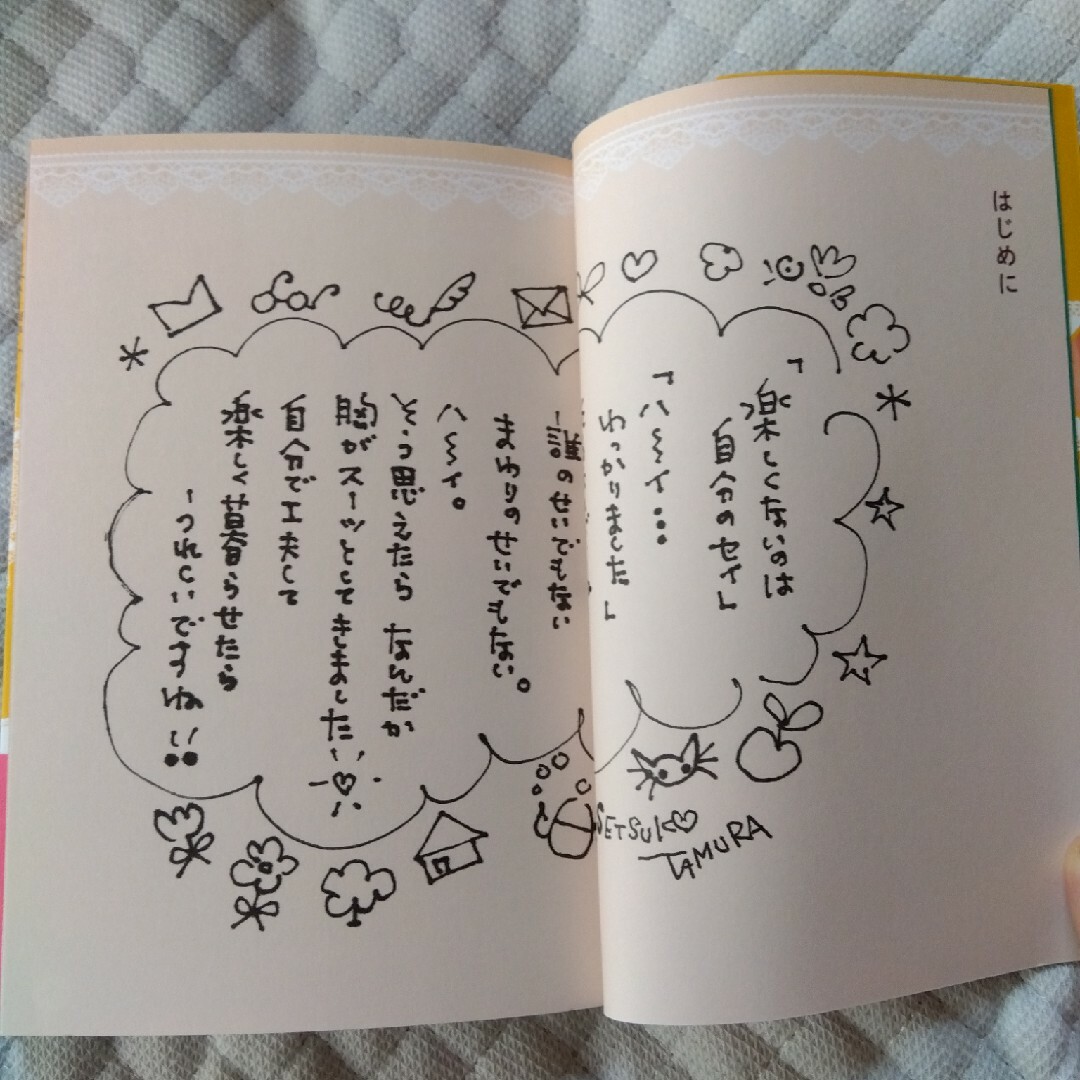 はじめに
「楽しくないのは
自分のセイ」
「ハ〜イ‥
わっかりました」
誰のせいでもない
まわりのせいでもない。
ハ〜イ。
そう思えたら なんだか
胸がスーッとしてきました
自分で工夫して
楽しく暮らせたら
うれしいですね!!
SETSUKO
TAMURA